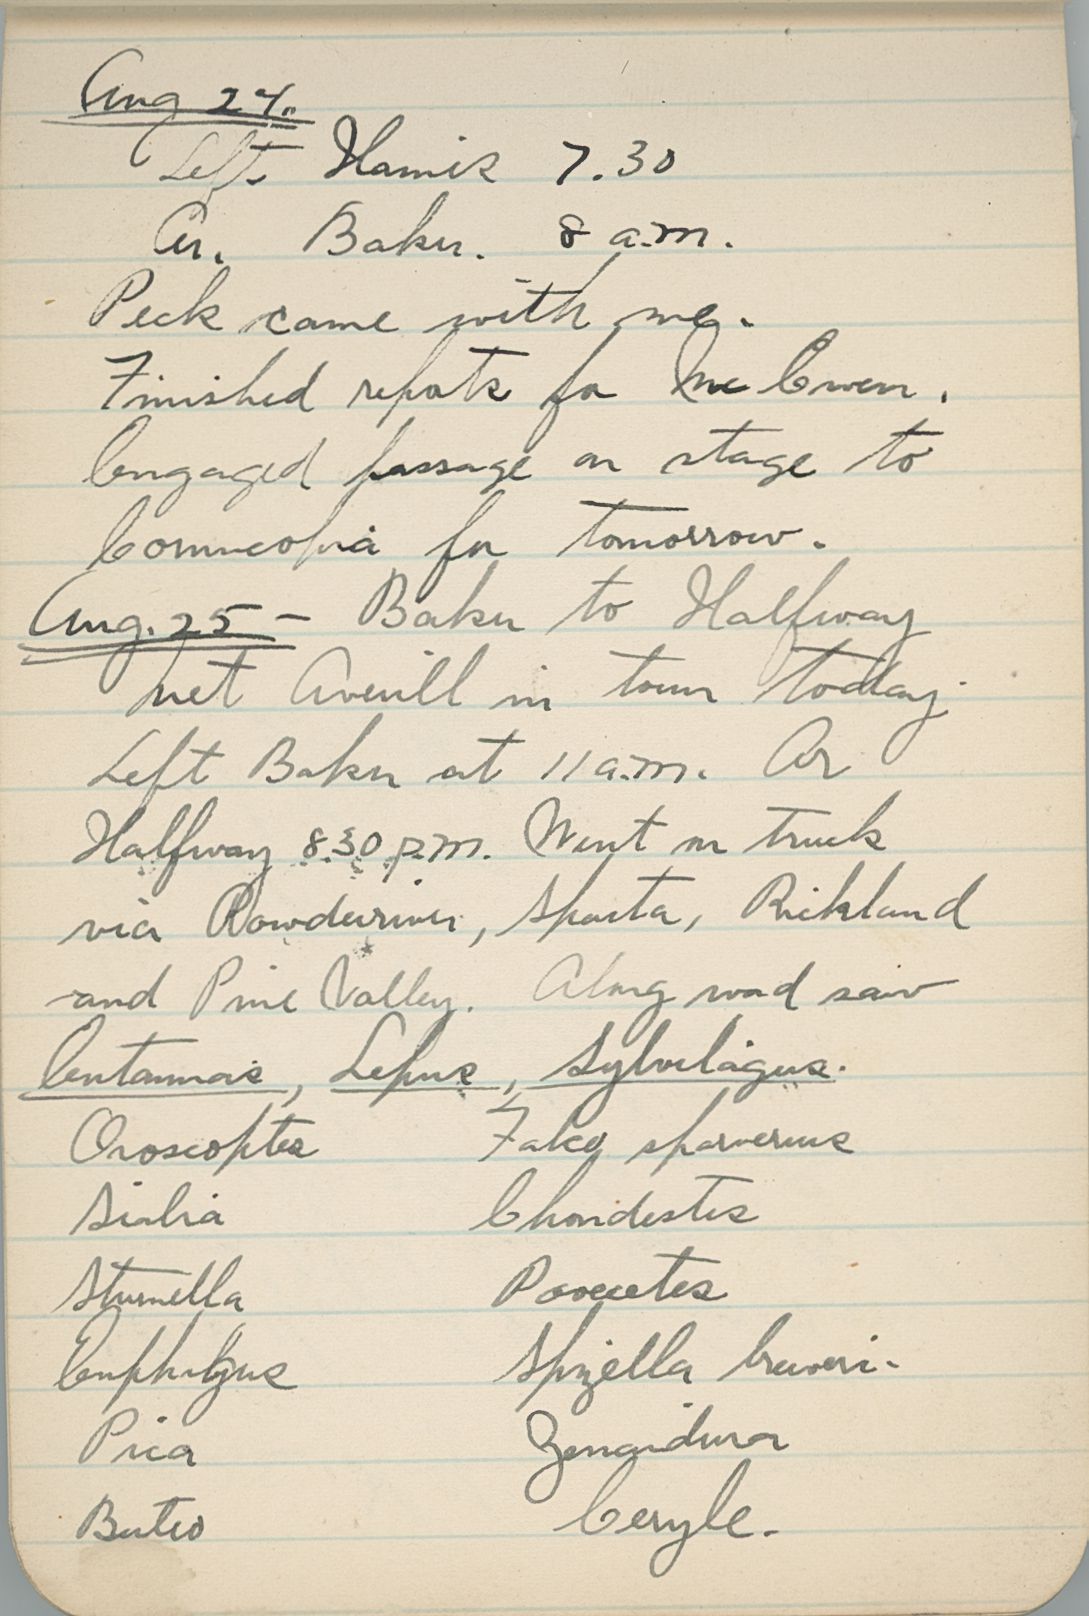 Aug 24.
Left Hamis 7.30
Ar. Baker. 8 a.m.
Peck came with me.
Finished reports for McEwen.
Engaged passage on stage to
Cornucopia for tomorrow.
Aug. 25 - Baker to Halfway
Met Averill in town today.
Left Baker at 11 a.m. Ar
Halfway 8.30 p.m. Went in truck
via Powderriver, Sparta, Richland
and Pine Valley. Along road saw
Lepus, Sylvilagus.
Oroscoptes Falco sparverius
Sialia Chondestes
Sturnella Pooecetes
Euphagus Spizella breweri.
Pica Zenaidura
Buteo Ceryle.